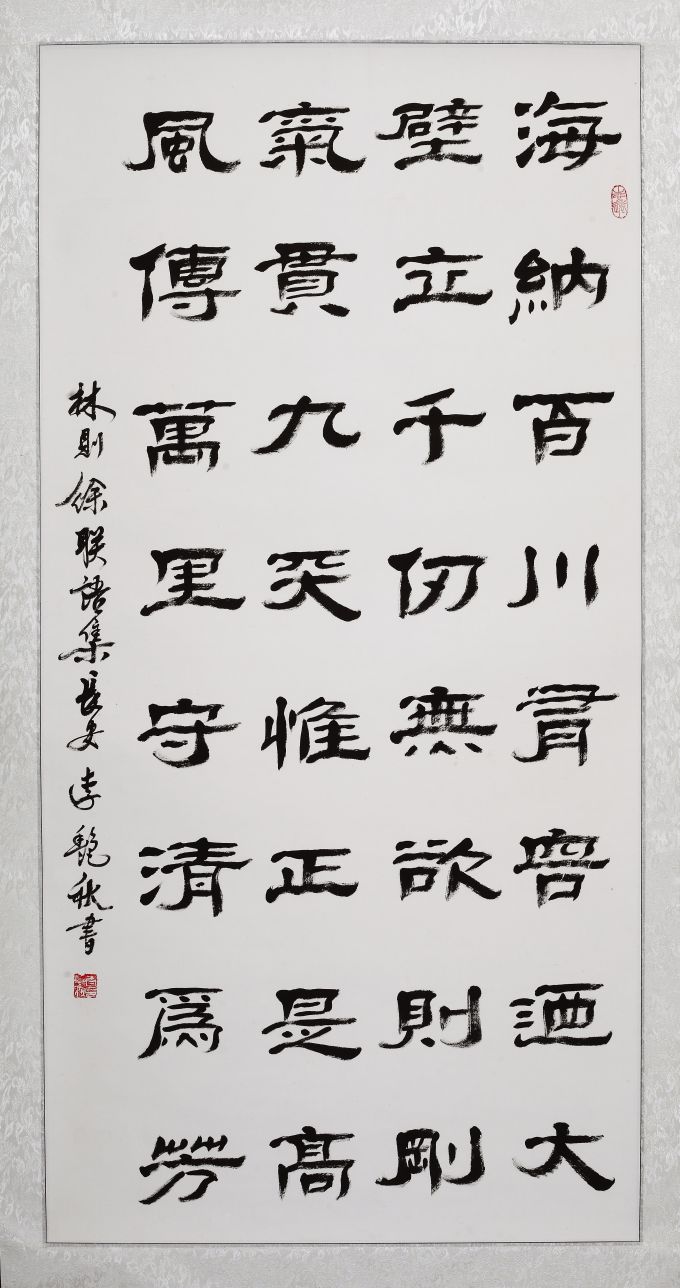 海納百川有容迺大
壁立千仞無欲則剛
氣貫九天惟正是高
風傳萬里守清爲芳
林則徐联語集長安李艷秋書